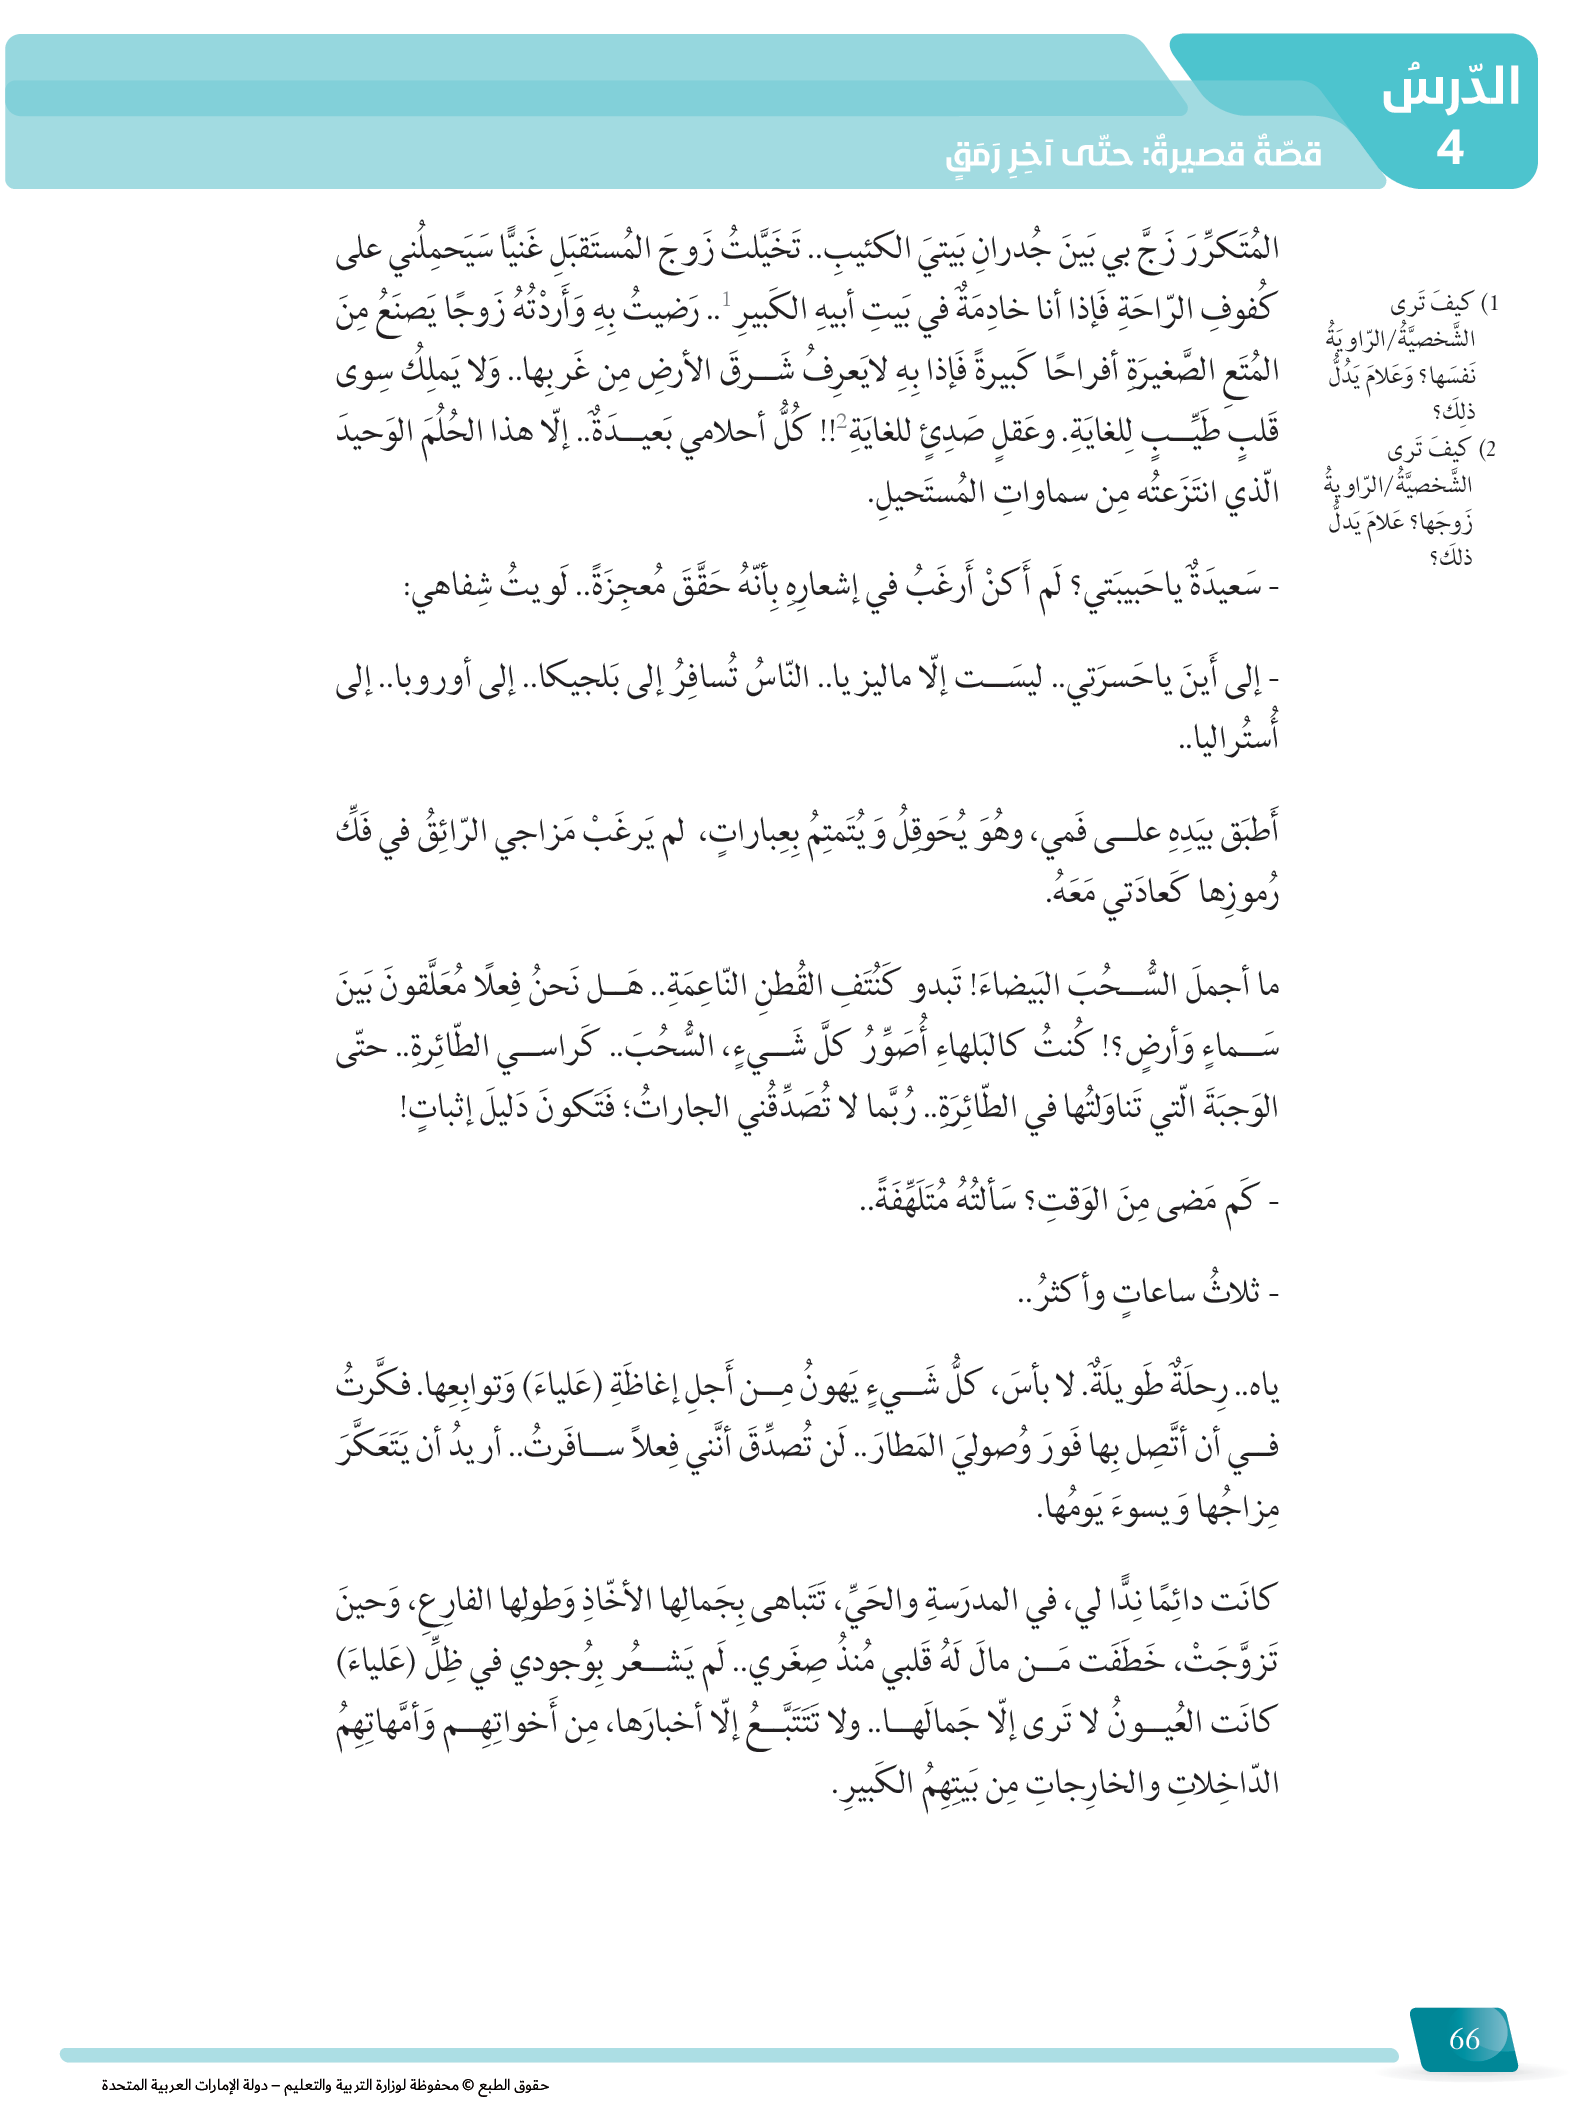 الدّرسُ
4
قصّةٌ قصيرةٌ: حتّى آخِرِ رَمَقٍ
المُتَكرِّرَ زَجَّ بي بَينَ جُدرانِ بَيتيَ الكئيبِ.. تَخَيَّلتُ زَوجَ المُستَقبَلِ غَنيًّا سَيَحمِلُني على
كُفوفِ الرّاحَةِ فَإذا أنا خادِمَةٌ في بَيتِ أبيهِ الكَبيرِ1.. رَضيتُ بِهِ وَأَردْتُهُ زَوجًا يَصنَعُ مِنَ
المُتَعِ الصَّغيرَةِ أفراحًا كَبيرةً فَإذا بِهِ لايَعرِفُ شَرقَ الأرضِ مِن غَربِها.. وَلا يَملِكُ سِوى
قَلبٍ طَيِّبٍ لِلغايَةِ. وعَقلٍ صَدِئٍ للغايَةِ2!! كُلُّ أحلامي بَعيدَةٌ.. إلّا هذا الحُلُمَ الوَحيدَ
الّذي انتَزَعتُه مِن سماواتِ المُستَحيلِ.
1) كيفَ تَرى
الشَّخصيَّةُ/الرّاوِيَةُ
نَفسَها؟ وَعَلامَ يَدُلُّ
ذلِكَ؟
2) كيفَ تَرى
الشَّخصيَّةُ/الرّاويةُ
زَوجَها؟ عَلامَ يَدلُّ
ذلكَ؟
- سَعيدَةٌ ياحَبيبَتي؟ لَم أَكنْ أَرغَبُ في إشعارِهِ بِأنّهُ حَقَّقَ مُعجِزَةً.. لَويتُ شِفاهي:
- إلى أَينَ ياحَسرَتي.. ليسَت إلّا ماليزيا.. النّاسُ تُسافِرُ إلى بَلجيكا.. إلى أوروبا.. إلى
أُستُراليا..
أَطبَق بيَدِهِ على فَمي، وهُوَ يُحَوقِلُ وَيُتَمتِمُ بِعِباراتٍ، لم يَرغَبْ مَزاجي الرّائِقُ في فَكِّ
رُموزِها كَعادَتي مَعَهُ.
ما أجملَ السُّحُبَ البَيضاءَ! تَبدو كَنُتَفِ القُطنِ النّاعِمَةِ.. هَل نَحنُ فِعلًا مُعَلَّقونَ بَينَ
سَماءٍ وَأرضٍ؟! كُنتُ كالبَلهاءِ أُصَوِّرُ كلَّ شَيءٍ، السُّحُبَ.. كَراسي الطّائِرةِ.. حتّى
الوَجبَةَ الّتي تَناوَلتُها في الطّائِرَةِ.. رُبَّما لا تُصَدِّقُني الجاراتُ؛ فَتَكونَ دَليلَ إثباتٍ!
- كَم مَضى مِنَ الوَقتِ؟ سَألتُهُ مُتَلَهِّفَةً..
- ثلاثُ ساعاتٍ وأكثرُ..
ياه.. رِحلَةٌ طَويلَةٌ. لا بأسَ، كلُّ شَيءٍ يَهونُ مِن أَجلِ إغاظَةِ (عَلياءَ) وَتوابِعِها. فكَّرتُ
في أن أتَّصِل بِها فَورَ وُصوليَ المَطارَ.. لَن تُصدِّقَ أنَّني فِعلاً سافَرتُ.. أريدُ أن يَتَعَكَّرَ
مِزاجُها وَيسوءَ يَومُها.
كانَت دائِمًا نِدًّا لي، في المدرَسةِ والحَيِّ، تَتَباهى بِجَمالِها الأخّاذِ وَطولِها الفارِعِ، وَحينَ
تَزوَّجَتْ، خَطَفَت مَن مالَ لَهُ قَلبي مُنذُ صِغَري.. لَم يَشعُر بِوُجودي في ظِلِّ (عَلياءَ)
كانَت العُيونُ لا تَرى إلّا جَمالَها.. ولا تَتَتَبَّعُ إلّا أخبارَها، مِن أَخواتِهِم وَأمَّهاتِهِمُ
الدّاخِلاتِ والخارِجاتِ مِن بَيتِهِمُ الكَبيرِ.
66
حقوق الطبع © محفوظة لوزارة التربية والتعليم – دولة الإمارات العربية المتحدة